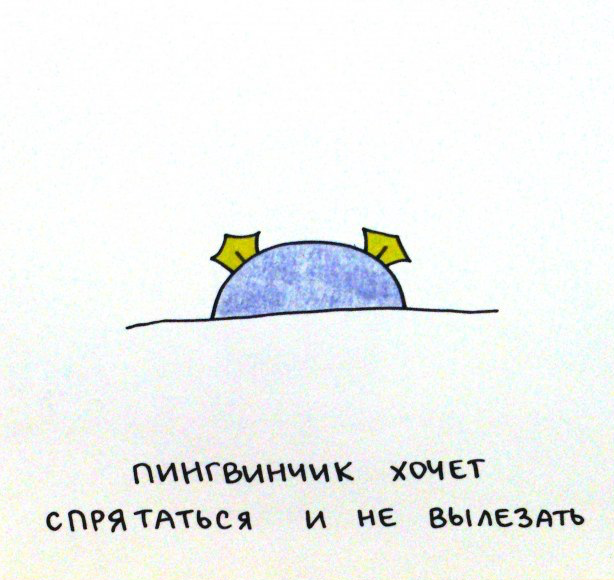 ПИНГВИНЧИК ХОЧЕТ
СПРЯТАТЬСЯ И НЕ ВЫЛЕЗАТЬ